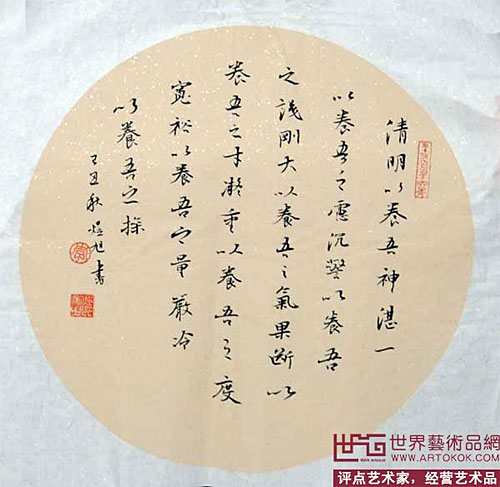 清明以養吾神湛一
以養吾之慮沉警以養吾
之識剛大以養吾之氣果斷以
養吾之才凝重以養吾之度
寬裕以養吾之量嚴冷
以養吾之操
己丑秋旭書
世界藝術品網
WWW.ARTOKOK.COM
评点艺术家，经营艺术品